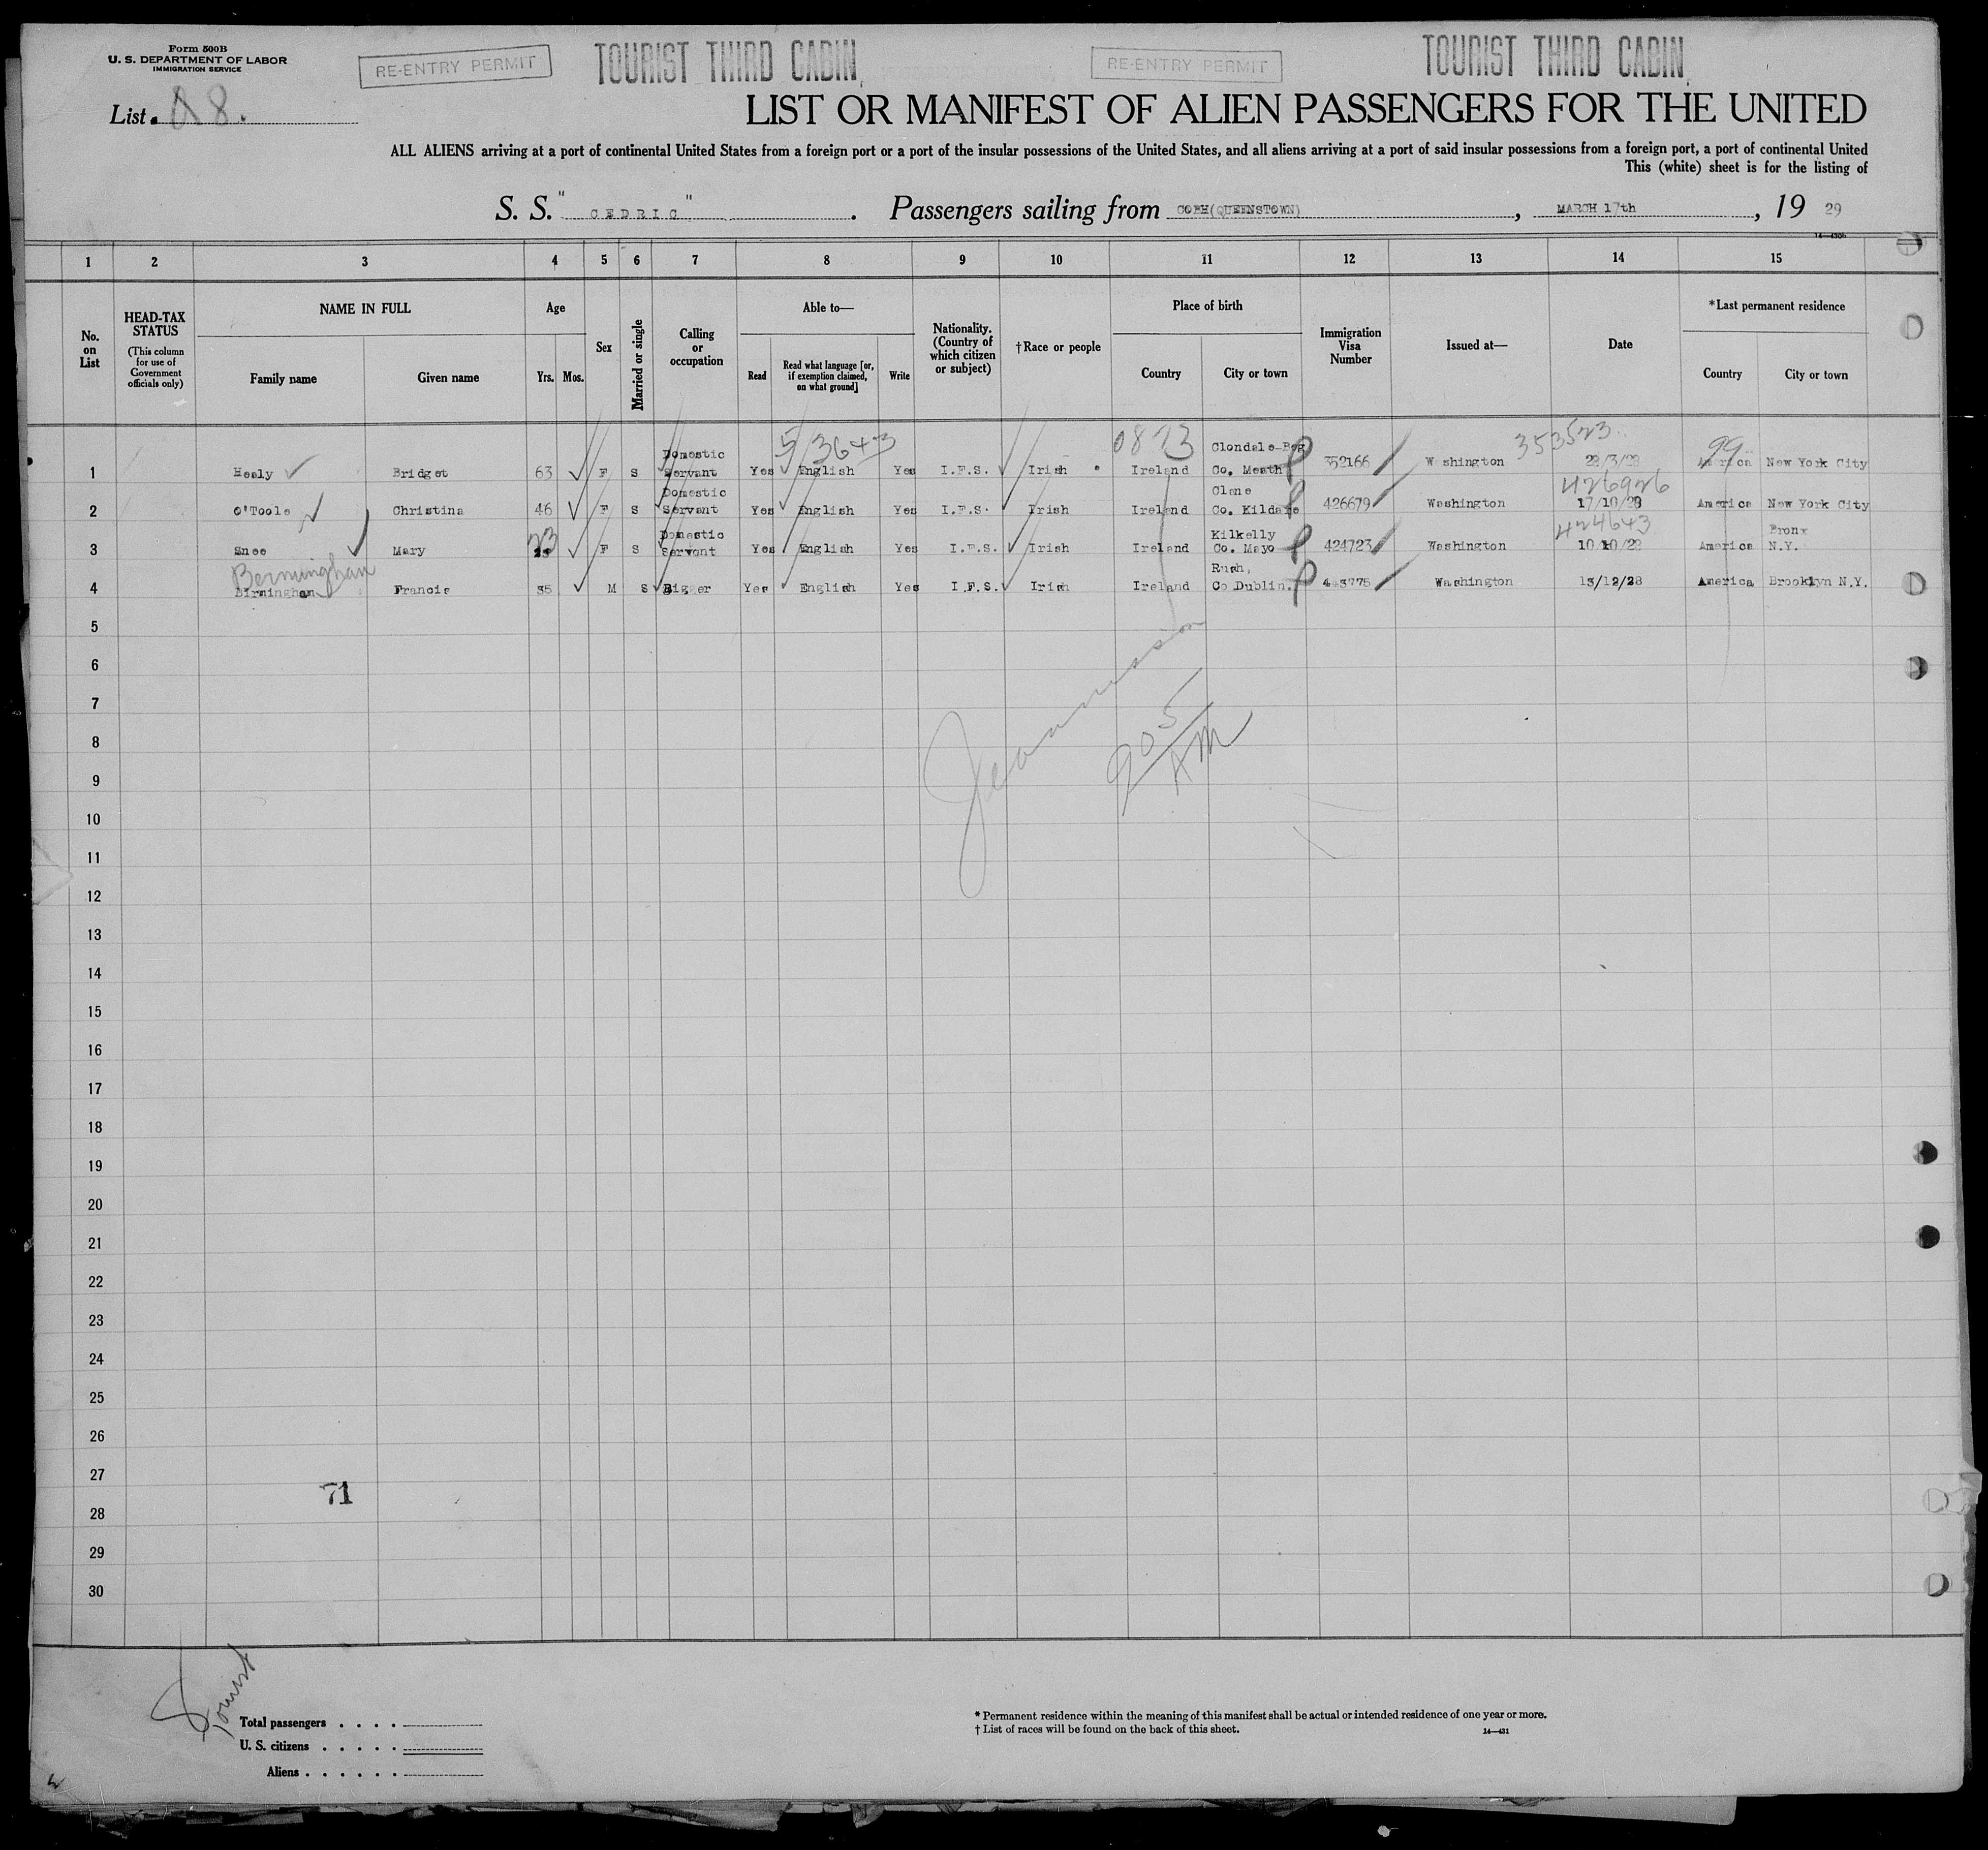 Form 500B
U. S. DEPARTMENT OF LABOR
IMMIGRATION SERVICE
RE-ENTRY PERMIT
TOURIST THIRD CABIN
RE-ENTRY PERMIT
TOURIST THIRD CABIN
List A8.
LIST OR MANIFEST OF ALIEN PASSENGERS FOR THE UNITED
ALL ALIENS arriving at a port of continental United States from a foreign port or a port of the insular possessions of the United States, and all aliens arriving at a port of said insular possessions from a foreign port, a port of continental United
This (white) sheet is for the listing of
S. S. "CEDRIC". Passengers sailing from COBH(QUEENSTOWN), MARCH 17th, 19 29
1 2 3 4 5 6 7 8 9 10 11 12 13 14 15
No. on List
HEAD-TAX STATUS
(This column for use of Government officials only)
NAME IN FULL
Family name
Given name
Age
Yrs. Mos.
Sex
Married or single
Calling or occupation
Able to—
Read
Read what language [or, if exemption claimed, on what ground]
Write
Nationality. (Country of which citizen or subject)
†Race or people
Place of birth
Country
City or town
Immigration Visa Number
Issued at—
Date
*Last permanent residence
Country
City or town
5/3643 0873 353523 99
1 Healy Bridget 63 F S Domestic Servant Yes English Yes I.F.S. Irish Ireland Clondale-Beg Co. Meath 352166 Washington 28/3/28 America New York City
426926
2 O'Toole Christina 46 F S Domestic Servant Yes English Yes I.F.S. Irish Ireland Clane Co. Kildare 426679 Washington 17/10/28 America New York City
424643
3 Snee Mary 23 F S Domestic Servant Yes English Yes I.F.S. Irish Ireland Kilkelly Co. Mayo 424723 Washington 10/10/28 America Bronx N.Y.
Bermingham
4 Birmingham Francis 35 M S Rigger Yes English Yes I.F.S. Irish Ireland Rush, Co Dublin. 443775 Washington 13/12/28 America Brooklyn N.Y.
5
6
7
905
AM
8
9
10
11
12
13
14
15
16
17
18
19
20
21
22
23
24
25
26
27
71
28
29
30
Tourist
Total passengers
U. S. citizens
Aliens
* Permanent residence within the meaning of this manifest shall be actual or intended residence of one year or more.
† List of races will be found on the back of this sheet.
14—431